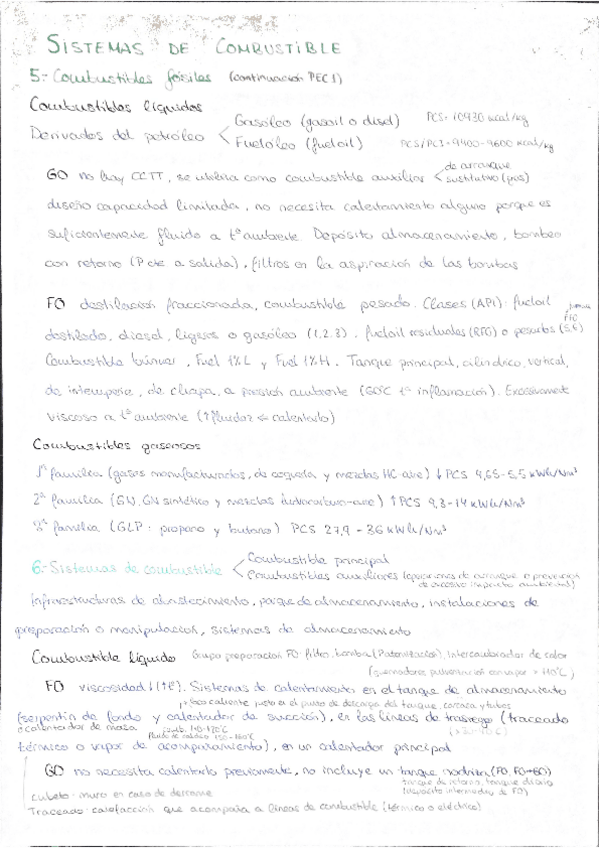 SISTEMAS DE COMBUSTIBLE
5.- Combustibles fósiles (continuación PEC1)
Combustibles líquidos
Derivados del petróleo < Gasóleo (gasoil o disel) PCS: 10930 kcal/kg
Fuelóleo (fueloil) PCS/PCI = 9400-9600 kcal/kg
GO no hay CCTT, se utiliza como combustible auxiliar < de arranque
sustitutivo (pcs)
diseño capacidad limitada, no necesita calentamiento alguno porque es
suficientemente fluido a tª ambiente. Depósito almacenamiento, bombeo
con retorno (P cte a salida), filtros en la aspiración de las bombas
FO destilación fraccionada, combustible pesado. Clases (API): fueloil
destilado, diesel, ligeros o gasóleo (1,2,3). fueloil residuales (RFO) o pesados (5,6)
Combustible búnker, Fuel 1%L y Fuel 1%H. Tanque principal, cilíndrico, vertical,
de intemperie, de chapa, a presión ambiente (60ºC tª inflamación). Excesivamente
viscoso a tª ambiente (↑fluidez ← calentarlo)
Combustibles gaseosos
1ª familia (gases manufacturados, de coquería y mezclas HC-aire) ↓ PCS 4,65-5,5 kWh/Nm³
2ª familia (GN, GN sintético y mezclas hidrocarburo-aire) ↑ PCS 9,3-14 kWh/Nm³
3ª familia (GLP: propano y butano) PCS 27,9 - 36 kWh/Nm³
6.- Sistemas de combustible < Combustible principal
Combustibles auxiliares (operaciones de arranque o prevención
de excesivo impacto ambiental)
Infraestructuras de abastecimiento, parque de almacenamiento, instalaciones de
preparación o manipulación, sistemas de almacenamiento
Combustible líquido Grupo preparación FO: filtro, bomba (Potenciación), intercambiador de calor
(quemadores pulverización con vapor > 110ºC)
FO viscosidad ↓ (↑tª). Sistemas de calentamiento en el tanque de almacenamiento
foco caliente justo en el punto de descarga del tanque, carcasa y tubos
(serpentín de fondo y calentador de succión), en las líneas de trasiego (traceado
o calentador de maza
fluido caldeo 150-160ºC
térmico o vapor de acompañamiento), en un calentador principal
GO no necesita calentarlo previamente, no incluye un tanque nodriza (FO, FO→GO)
tanque de retorno, tanque diario
(depósito intermedio de FO)
cubeto: muro en caso de derrame
Traceado: calefacción que acompaña a líneas de combustible (térmico o eléctrico)